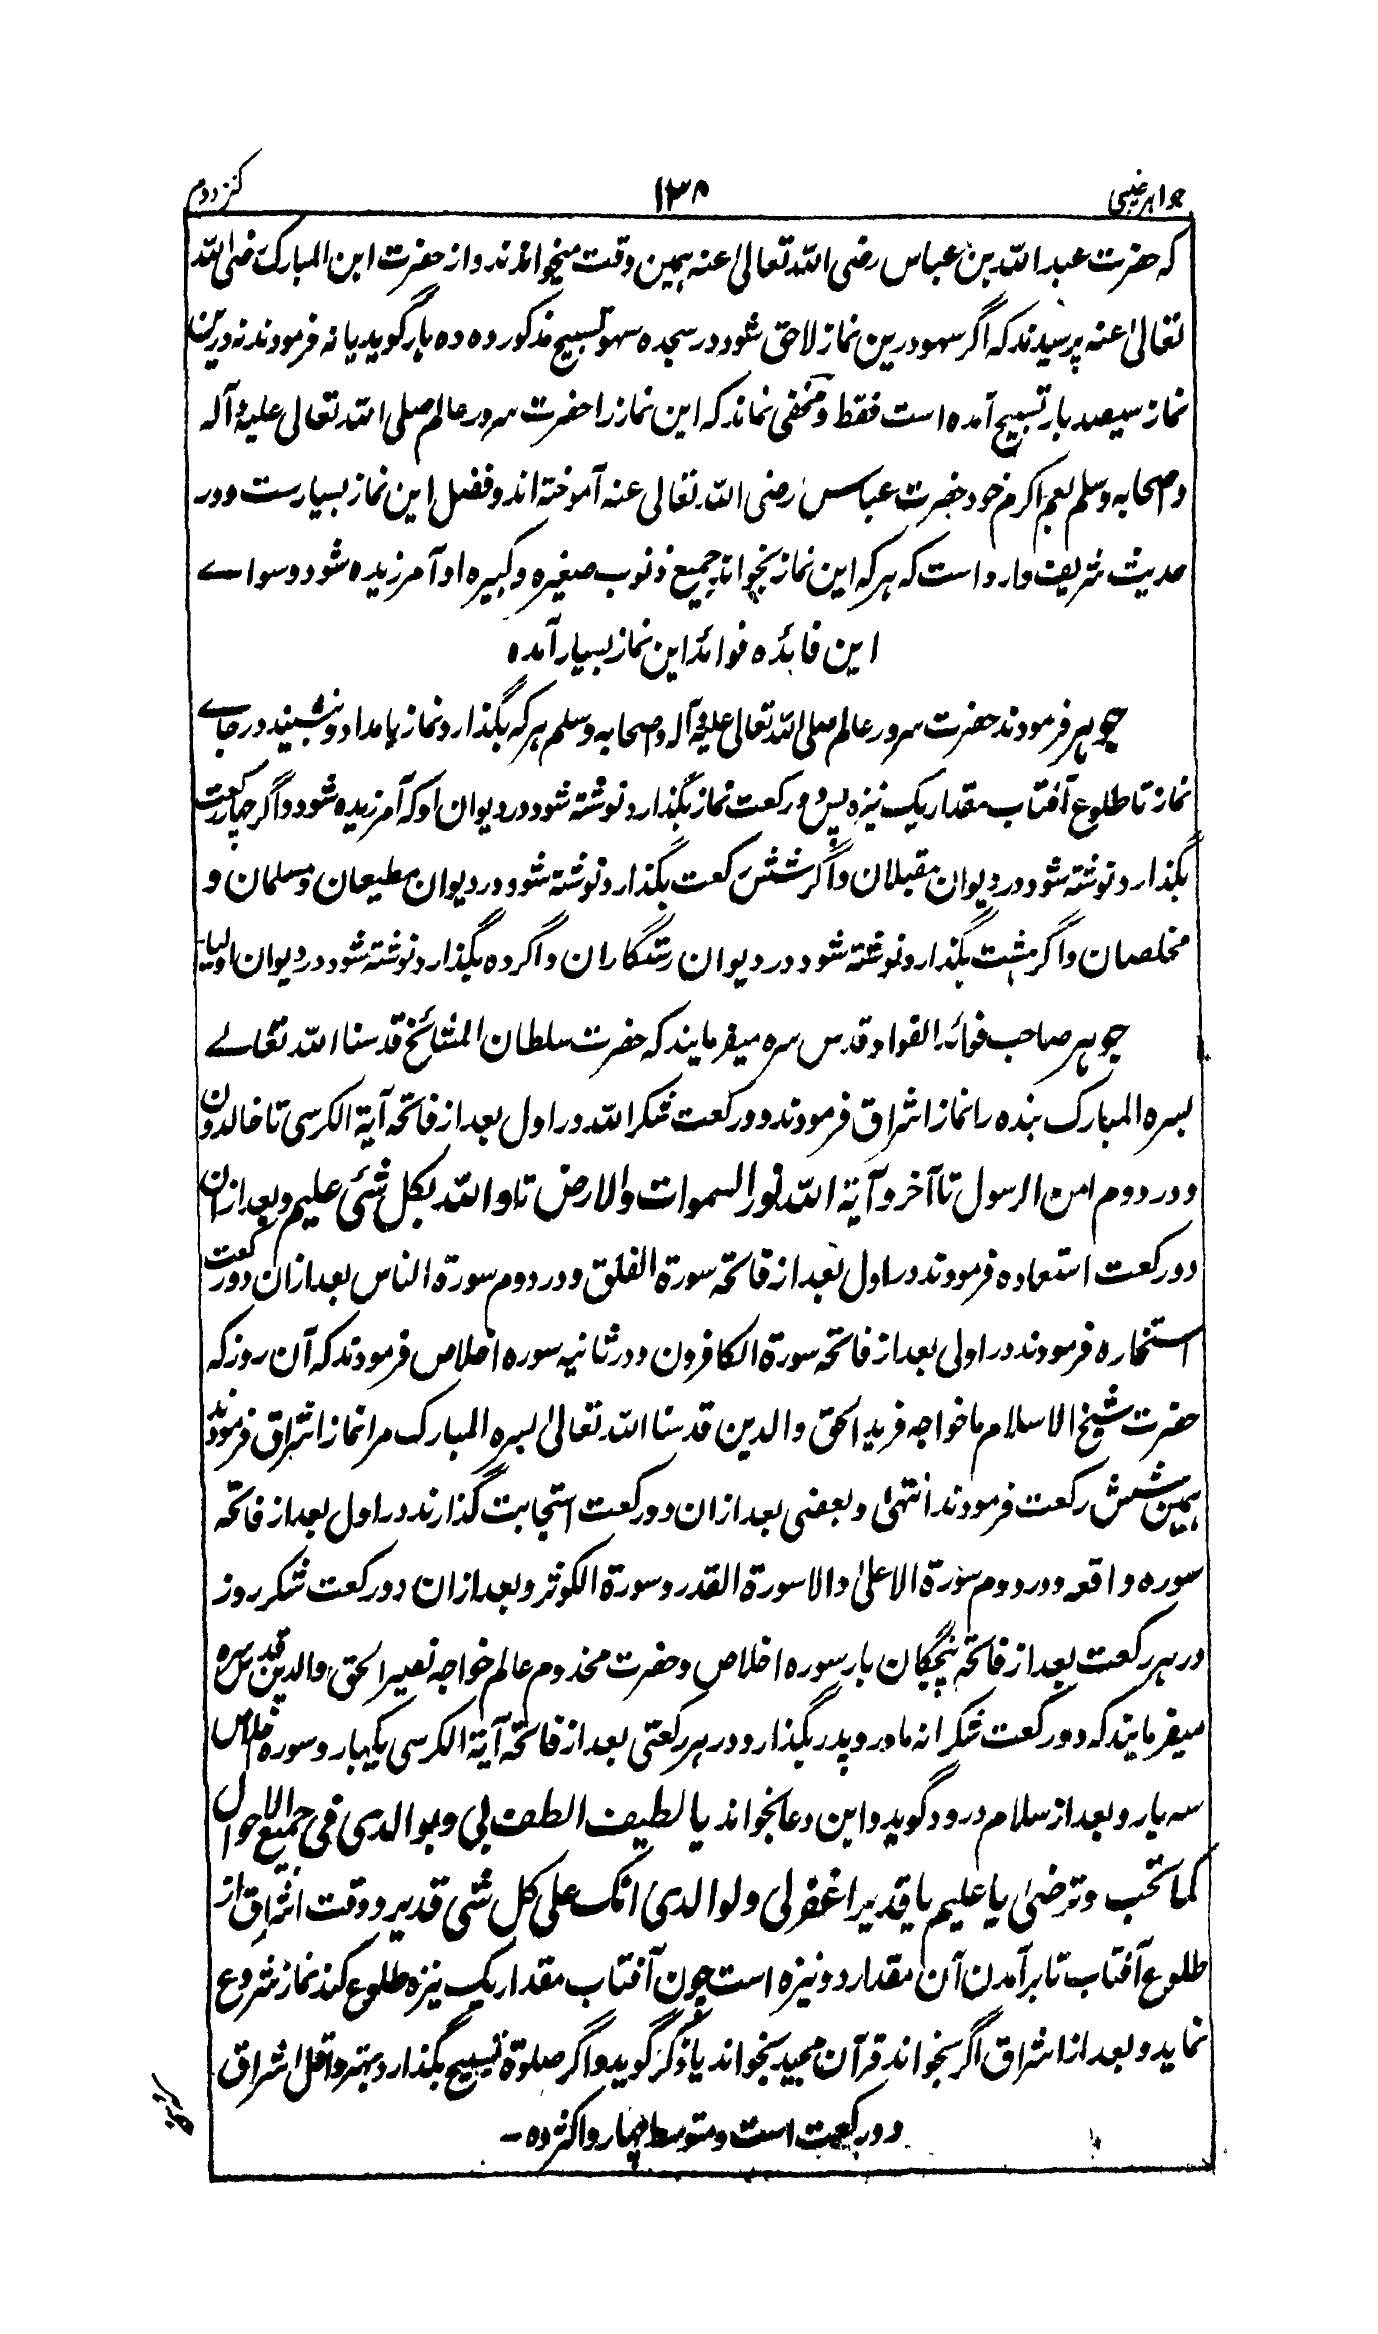 جواہر غیبی ۱۳۸ کنز دوم
کہ حضرت عبداللہ بن عباس رضی اللہ تعالیٰ عنہ ہمین وقت میخواندند و از حضرت ابن المبارک رضی اللہ
تعالیٰ عنہ پرسیدند کہ اگر سہو درین نماز لاحق شود در سجدہ سہو تسبیح مذکور دہ دہ بار گوید یا نہ فرمودند نہ درین
نماز سیصد بار تسبیح آمدہ است فقط و مخفی نماند کہ این نماز را حضرت سرور عالم صلی اللہ تعالی علیہ و آلہ
و صحابہ و سلم بعم اکرم خود حضرت عباس رضی اللہ تعالی عنہ آموختہ اند و فضل این نماز بسیارست و در
حدیث شریف وارد است کہ ہر کہ این نماز بخواند جمیع ذنوب صغیرہ و کبیرہ او آمرزیدہ شود و سواے
این فائدہ فوائد این نماز بسیار آمدہ
جوہر فرمودند حضرت سرور عالم صلی اللہ تعالی علیہ و آلہ و صحابہ و سلم ہر کہ بگذارد نماز بامداد و بنشیند در جاے
نماز تا طلوع آفتاب مقدار یک نیزہ پس دو رکعت نماز بگذارد نوشتہ شود در دیوان او کہ آمرزیدہ شود و اگر چہار رکعت
بگذارد نوشتہ شود در دیوان مقبلان و اگر شش رکعت بگذارد نوشتہ شود در دیوان مطیعان و مسلمان و
مخلصان و اگر ہشت بگذارد نوشتہ شود در دیوان رستگاران و اگر دہ بگذارد نوشتہ شود در دیوان اولیا
جوہر صاحب فوائد الفواد قدس سرہ میفرمایند کہ حضرت سلطان المشائخ قدسنا اللہ تعالے
بسرہ المبارک بندہ را نماز اشراق فرمودند دو رکعت شکر اللہ در اول بعد از فاتحہ آیۃ الکرسی تا خالدون
و در دوم امن الرسول تا آخر و آیۃ اللہ نور السموات والارض تا و اللہ بکل شئی علیم و بعد ازان
دو رکعت استعاذہ فرمودند در اول بعد از فاتحہ سورۃ الفلق و در دوم سورۃ الناس بعد ازان دو رکعت
استخارہ فرمودند در اولی بعد از فاتحہ سورۃ الکافرون و در ثانیہ سورہ اخلاص فرمودند کہ آن روز کہ
حضرت شیخ الاسلام ما خواجہ فرید الحق والدین قدسنا اللہ تعالیٰ بسرہ المبارک مرا نماز اشراق فرمودند
ہمین شش رکعت فرمودند انتہیٰ و بعضی بعد ازان دو رکعت استجابت گذارند در اول بعد از فاتحہ
سورہ واقعہ و در دوم سورۃ الاعلیٰ والا سورۃ القدر و سورۃ الکوثر و بعد ازان دو رکعت شکر روز
در ہر رکعت بعد از فاتحہ پنجگان بار سورہ اخلاص و حضرت مخدوم عالم خواجہ نصیر الحق والدین قدس سرہ
میفرمایند کہ دو رکعت شکرانہ مادر و پدر بگذارد و در ہر رکعتی بعد از فاتحہ آیۃ الکرسی یکبار و سورہ اخلاص
سہ بار و بعد از سلام درود گوید و این دعا بخواند یا لطیف الطف بی و بوالدی فی جمیع الاحوال
کما تحب و ترضیٰ یا علیم یا قدیر اغفر لی ولوالدی انک علی کل شی قدیر و وقت اشراق از
طلوع آفتاب تا برآمدن آن مقدار دو نیزہ است چون آفتاب مقدار یک نیزہ طلوع کند نماز شروع
نماید و بعد از اشراق اگر بخواند قرآن مجید بخواند یا ذکر گوید و اگر صلوۃ تسبیح بگذارد بہتر و اقل اشراق
دو رکعت است و متوسط چہار و اکثر دہ –